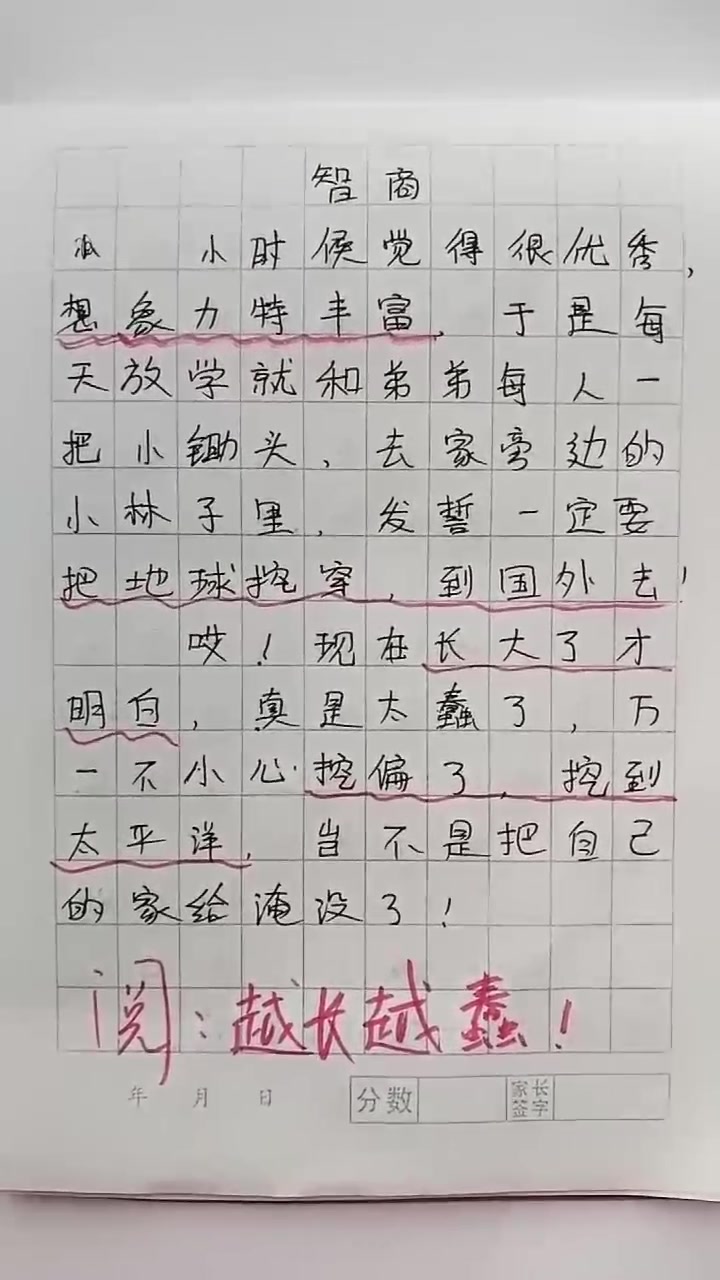 智商
小时候觉得很优秀，
想象力特丰富，于是每
天放学就和弟弟每人一
把小锄头，去家旁边的
小林子里，发誓一定要
把地球挖穿，到国外去！
哎！现在长大了才
明白，真是太蠢了，万
一不小心挖偏了，挖到
太平洋，岂不是把自己
的家给淹没了！
阅：越长越蠢！
年 月 日 分数 家长签字